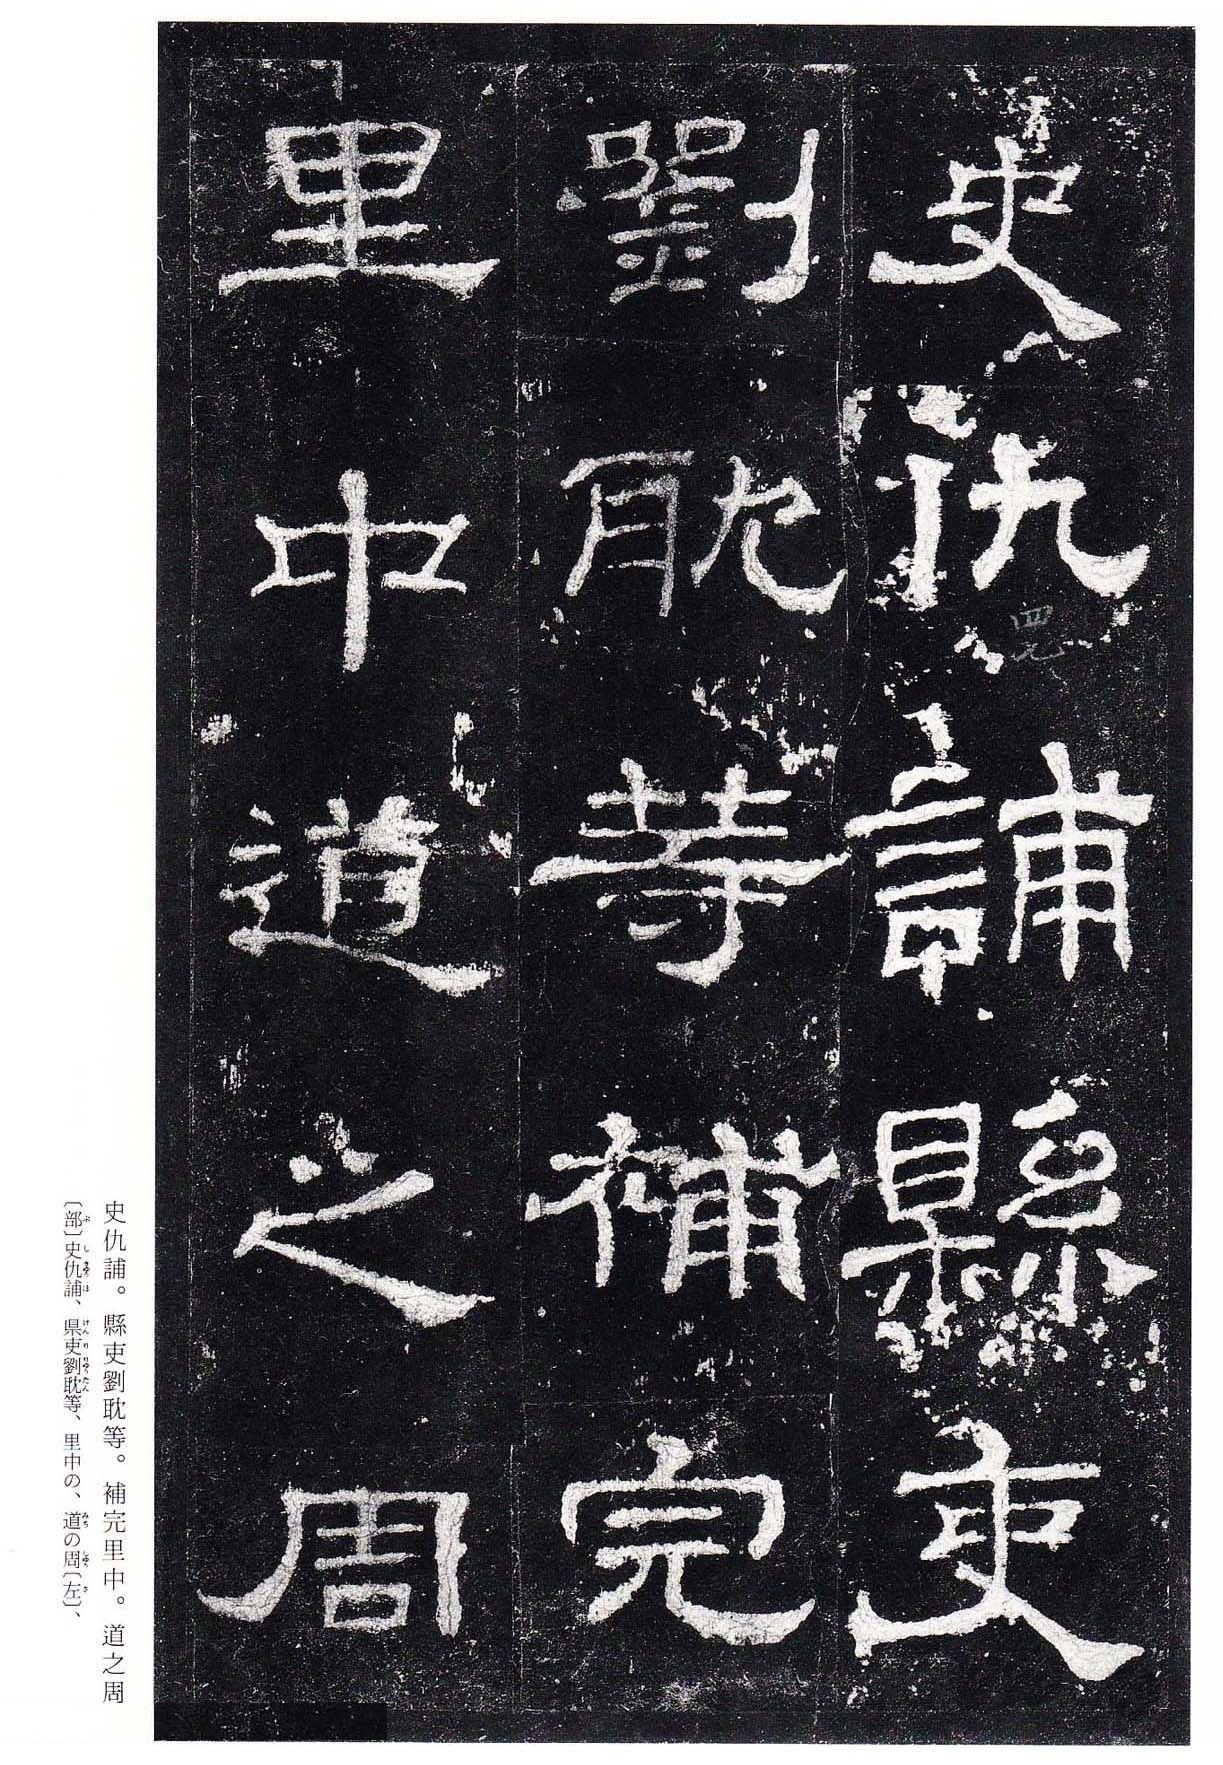 史仇誧縣吏
劉耽等補完
里中道之周
四九
史仇誧。縣吏劉耽等。補完里中。道之周
〔部〕史仇誧、県吏劉耽等、里中の、道の周〔左〕、